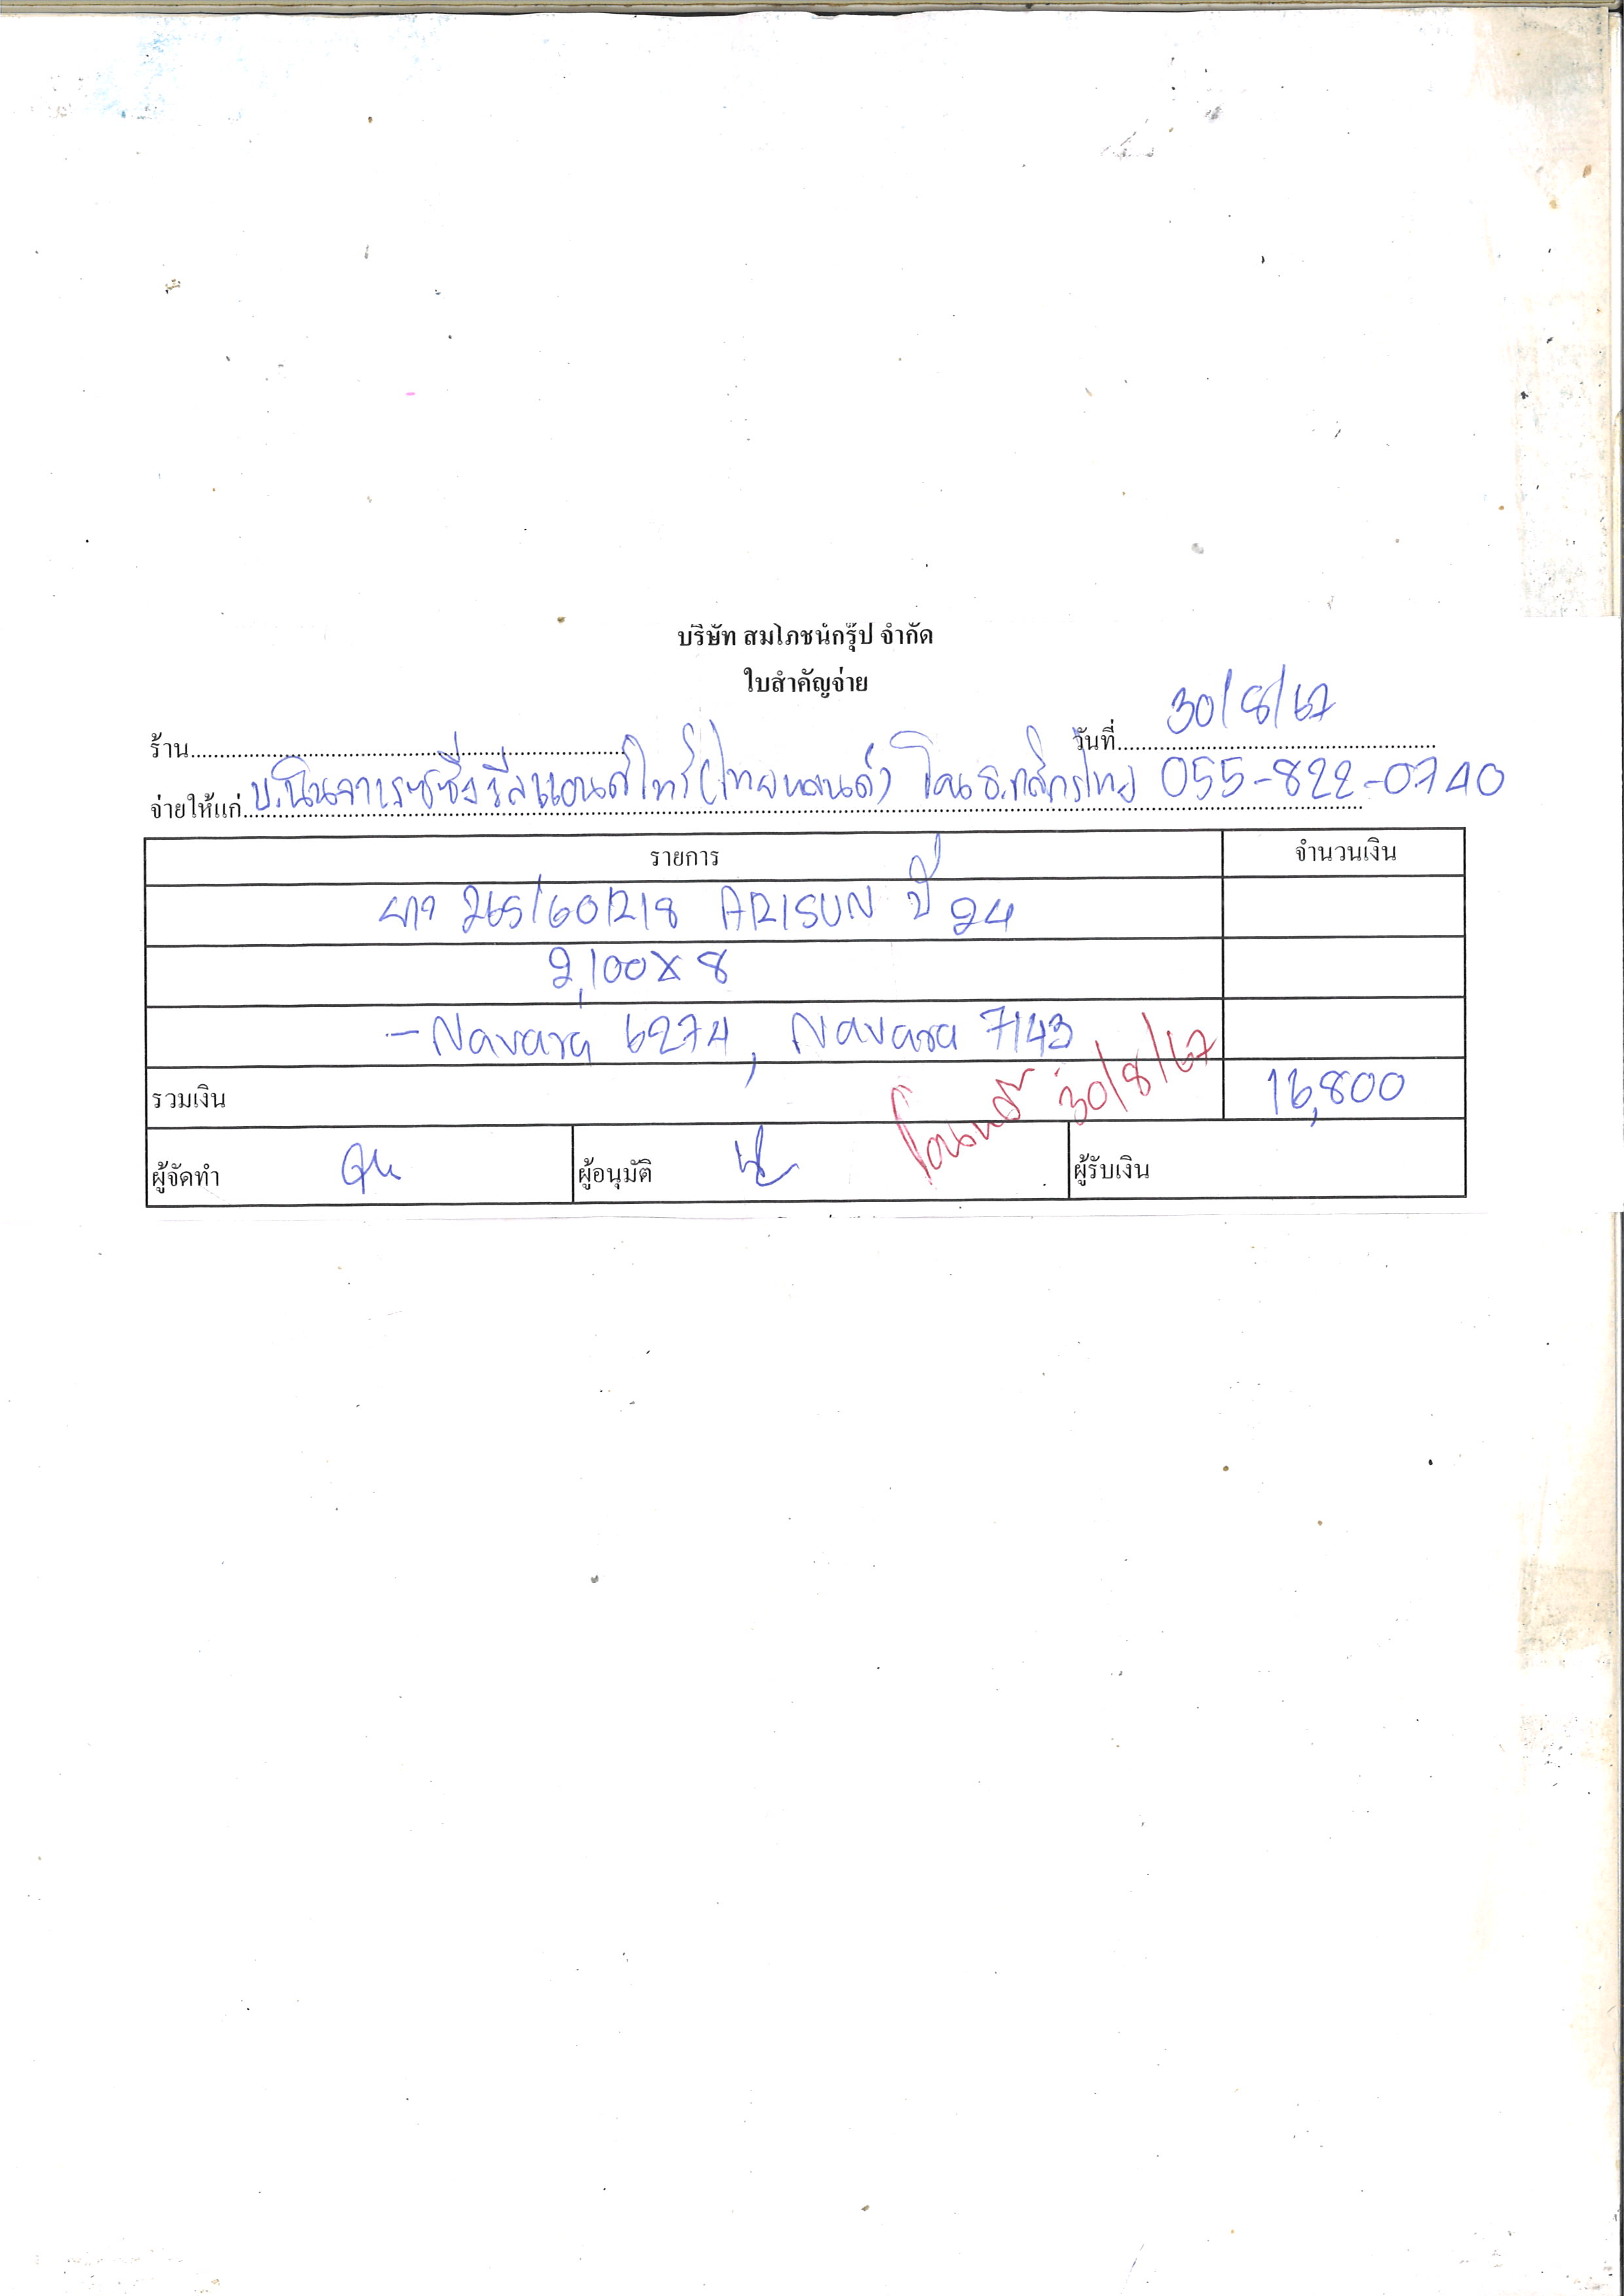 บริษัท สมโภชน์กรุ๊ป จำกัด
ใบสำคัญจ่าย
ร้าน วันที่ 30/8/67
จ่ายให้แก่ บ.นินจาเรซซิ่งวีลแอนด์ไทร์(ไทยแลนด์) โอน ธ.กสิกรไทย 055-822-0740
รายการ จำนวนเงิน
ยาง 265/60R18 ARISUN ปี 24
2,100 x 8
- Navara 6274, Navara 7143
รวมเงิน 16,800
โอนแล้ว 30/8/67
ผู้จัดทำ ผู้อนุมัติ ผู้รับเงิน